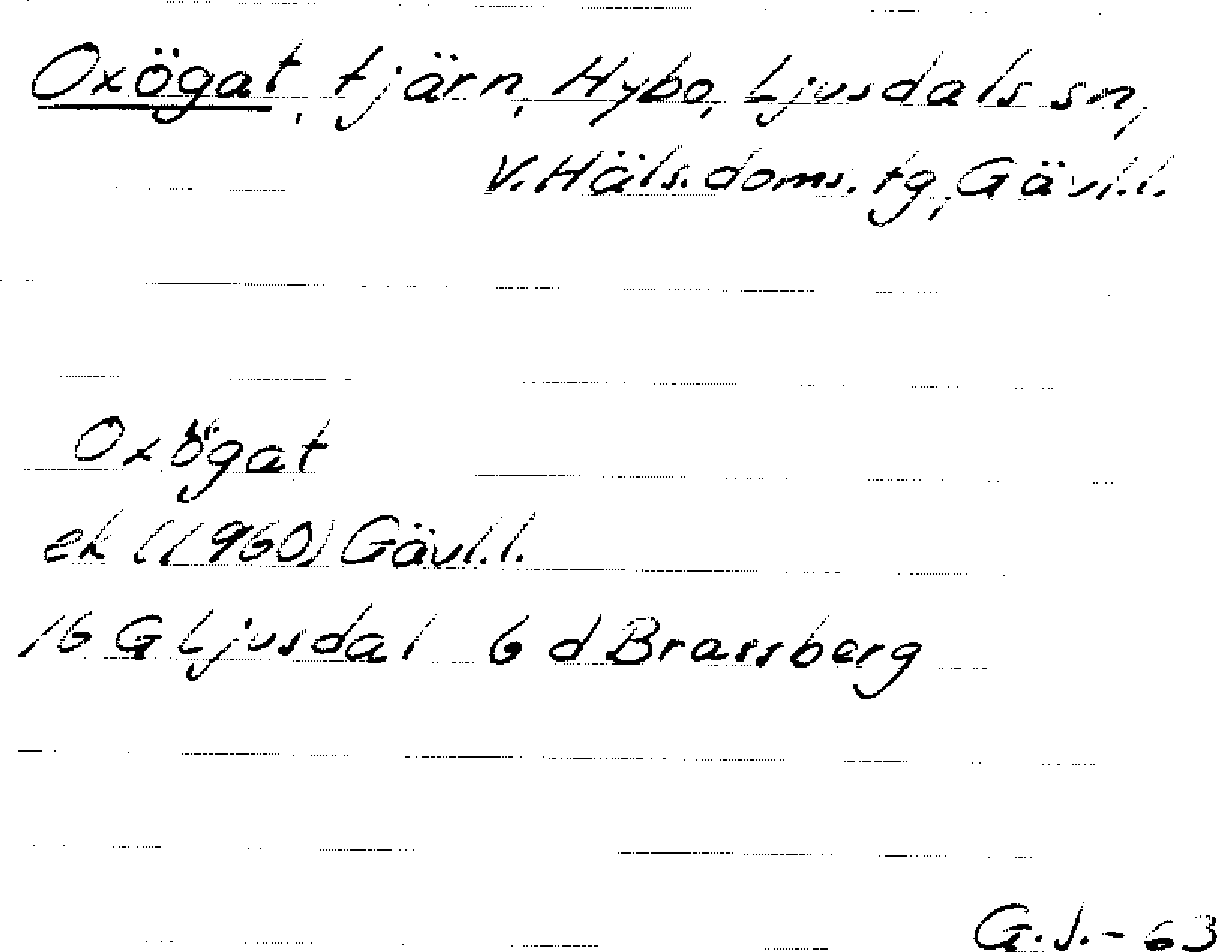 Oxögat, tjärn, Hybo, Ljusdals sn,
V. Häls. doms. tg, Gävl.l.
Oxögat
ek (1960) Gävl.l.
16 G Ljusdal 6 d Brassberg
G.J.-63